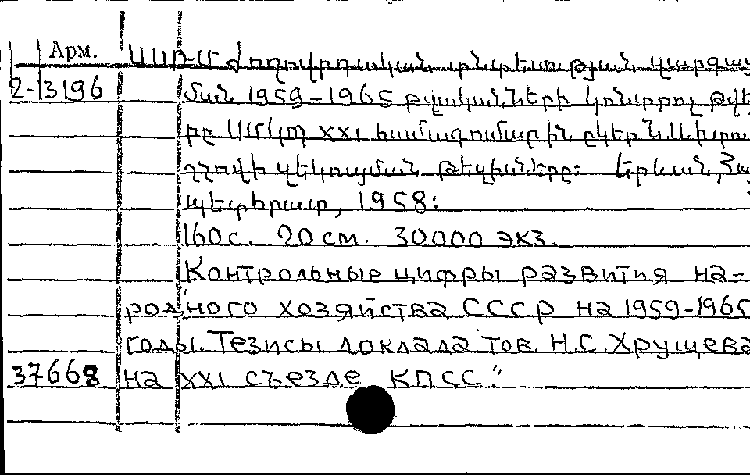 Арм.
ՍՍՌՄ ժողովրդական տնտեսության զարգաց
2-3196 ման 1959-1965 թվականների կոնտրոլ թվե
րը ՍՄԿՊ XXI համագումարին ընկեր Ն.Ս. Խրու
շչովի զեկուցման թեզիսները: Երևան, Հայ
պետհրատ, 1958:
160 с. 20 см. 30000 экз.
"Контрольные цифры развития на-
родного хозяйства СССР на 1959-1965
годы. Тезисы доклада тов. Н.С. Хрущева
37668 на XXI съезде КПСС."